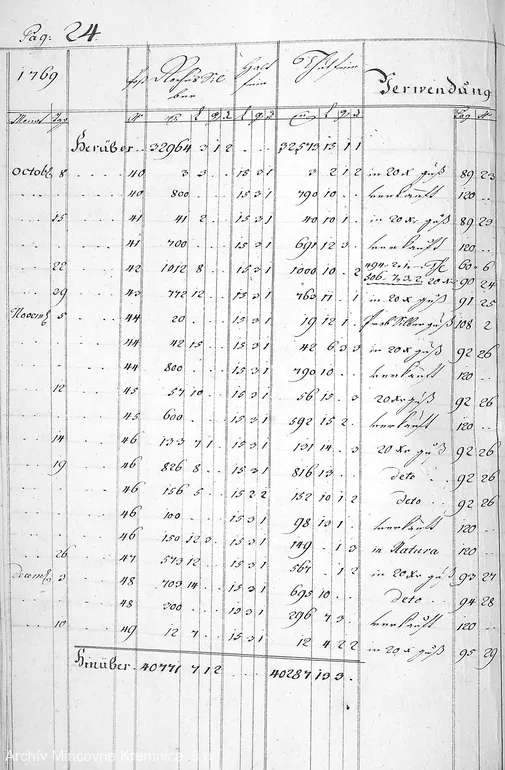 Pag: 24
1769 Halt fein Verwendung
Monat Tag Pag N
Herüber 32964 3 1 2 32573 15 1 1
Octob 8 40 3 3 15 3 1 3 2 1 2 in 20 x güß 89 23
40 800 15 3 1 790 10 verkauft 120
15 41 41 2 15 3 1 40 10 1 in 20 x güß 89 23
41 700 15 3 1 691 12 3 verkauft 120
22 42 1012 8 15 3 1 1000 10 2 60 6
506. 7. 3. 2 20 x 90 24
29 43 772 12 15 3 1 763 11 1 in 20 x güß 91 25
Novemb 5 44 20 15 3 1 19 12 1 108 2
44 42 15 15 3 1 42 6 3 3 in 20 x güß 92 26
44 800 15 3 1 790 10 verkauft 120
12 45 57 10 15 3 1 56 15 3 20 x güß 92 26
45 600 15 3 1 592 15 2 verkauft 120
14 46 133 7 1 15 3 1 131 14 3 20 x güß 92 26
19 46 826 8 15 3 1 816 13 deto 92 26
46 156 5 15 2 2 152 10 1 2 deto 92 26
46 100 15 3 1 98 13 1 verkauft 120
46 150 12 3 15 3 1 149 1 3 in Natura 120
26 47 573 12 15 3 1 567 1 2 in 20 x güß 93 27
Decemb 3 48 703 14 15 3 1 695 10 deto 94 28
48 300 15 3 1 296 7 3 verkauft 120
10 49 12 7 15 3 1 12 4 2 2 in 20 x güß 95 29
Hinüber 40771 7 1 2 40287 13 3
Archív Mincovne Kremnica,